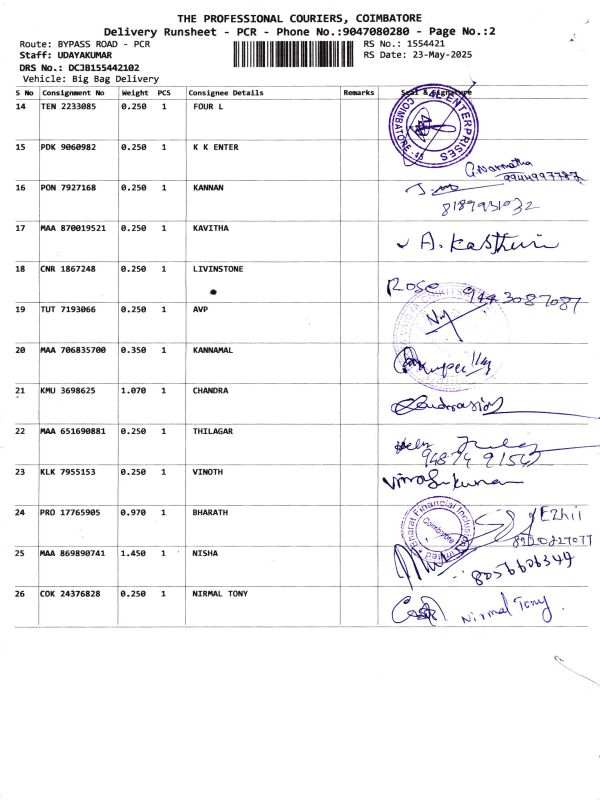 THE PROFESSIONAL COURIERS, COIMBATORE
Delivery Runsheet - PCR - Phone No.:9047080280 - Page No.:2
Route: BYPASS ROAD - PCR RS No.: 1554421
Staff: UDAYAKUMAR RS Date: 23-May-2025
DRS No.: DCJB155442102
Vehicle: Big Bag Delivery
S No Consignment No Weight PCS Consignee Details Remarks Seal & Signature
14 TEN 2233085 0.250 1 FOUR L
ENTERPRISES COIMBATORE
15 PDK 9060982 0.250 1 K K ENTER
9944997787
16 PON 7927168 0.250 1 KANNAN
8189931032
17 MAA 870019521 0.250 1 KAVITHA A. Kasthuri
18 CNR 1867248 0.250 1 LIVINSTONE
Rose 9443087087
19 TUT 7193066 0.250 1 AVP
20 MAA 706835700 0.350 1 KANNAMAL
21 KMU 3698625 1.070 1 CHANDRA
22 MAA 651690881 0.250 1 THILAGAR
23 KLK 7955153 0.250 1 VINOTH
24 PRO 17765905 0.970 1 BHARATH Bharat Financial Inclusion Limited Coimbatore Ezhil
25 MAA 869890741 1.450 1 NISHA 8056606344
26 COK 24376828 0.250 1 NIRMAL TONY Nirmal Tony.